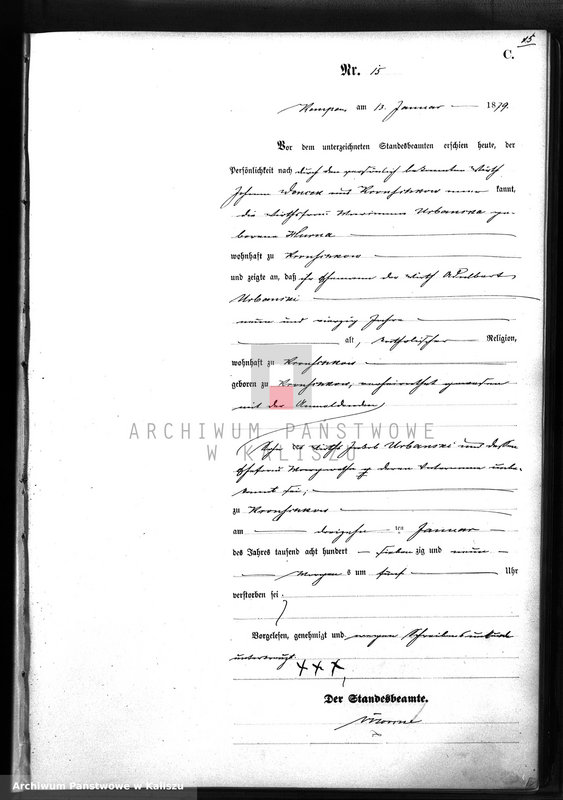 15
C.
Nr. 15
Kempen, am 13. Januar 1879.
Vor dem unterzeichneten Standesbeamten erschien heute, der
Persönlichkeit nach durch den persönlich bekannten Wirth
Johann und kannt,
die Wirthsfrau Marianna Urbanska ge-
borene
wohnhaft zu
und zeigte an, daß ihr Ehemann der Wirth Adalbert
Urbanski
neun und vierzig Jahre
alt, katholischer Religion,
wohnhaft zu
geboren zu verheirathet gewesen
mit der Anmeldenden
Sohn des Wirths Jakob Urbanski und dessen
Ehefrau deren unbe-
kannt sei;
zu
am dreizehn ten Januar
des Jahres tausend acht hundert sieben zig und neun
Morgen s um fünf Uhr
verstorben sei.
Vorgelesen, genehmigt und wegen Schreibens
unterkreuzt
+++
Der Standesbeamte.
ARCHIWUM PAŃSTWOWE
W KALISZU
Archiwum Państwowe w Kaliszu